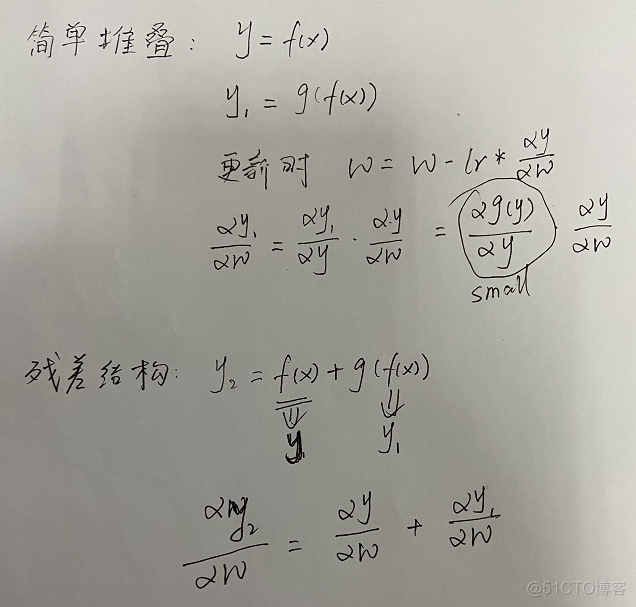 简单堆叠: y = f(x)
y₁ = g(f(x))
更新时 w = w - lr * αy/αw
αy₁/αw = αy₁/αy · αy/αw = αg(y)/αy · αy/αw
small
残差结构: y₂ = f(x) + g(f(x))
⇓ ⇓
y y₁
αy₂/αw = αy/αw + αy₁/αw
@51CTO博客